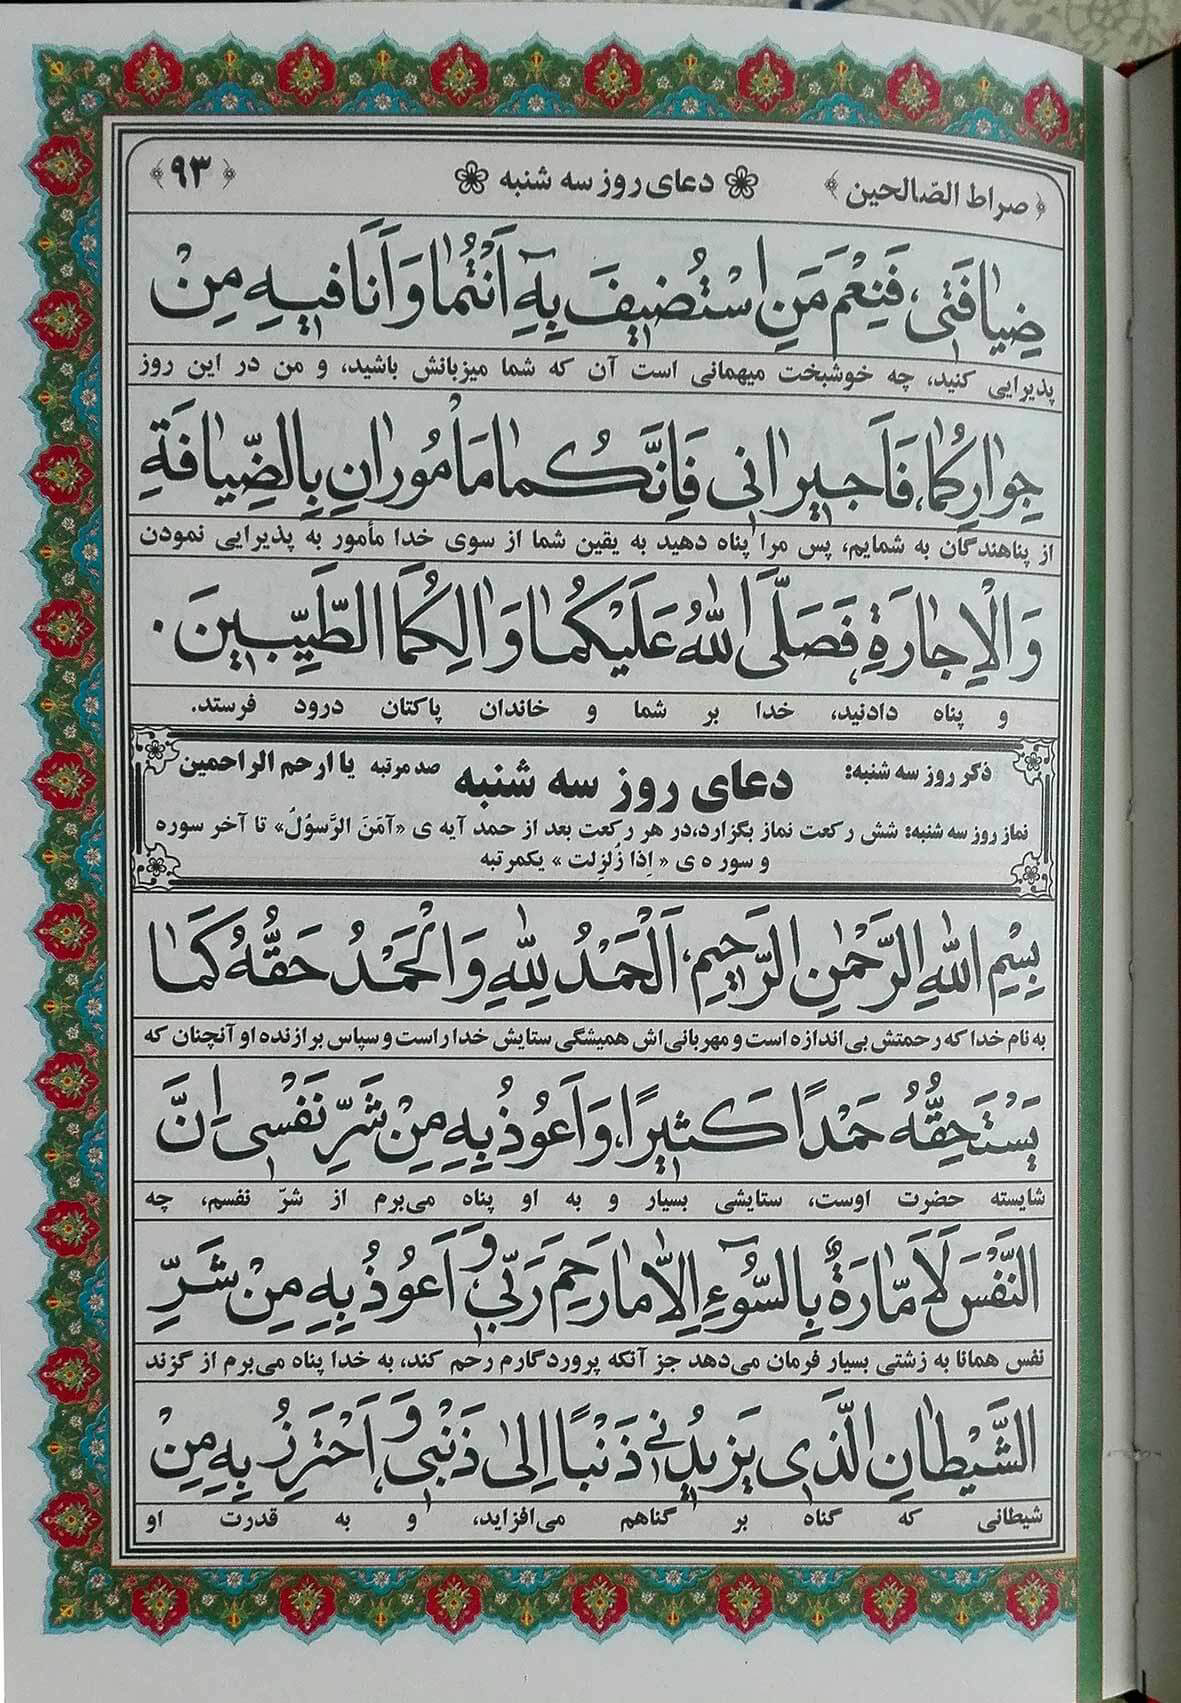 صراط الصّالحین
دعای روز سه شنبه
۹۳
ضِیافَتی، فَنِعْمَ مَنِ اسْتُضیفَ بِهِ اَنْتُما وَ اَنَا فیهِ مِنْ
پذیرایی کنید، چه خوشبخت میهمانی است آن که شما میزبانش باشید، و من در این روز
جِوارِکُما، فَاَجیرانی فَاِنَّکُما مَاْمُورانِ بِالضِّیافَةِ
از پناهندگان به شمایم، پس مرا پناه دهید به یقین شما از سوی خدا مأمور به پذیرایی نمودن
وَالْاِجارَةِ، فَصَلَّی اللهُ عَلَیْکُما وَ الِکُمَا الطَّیِّبینَ .
و پناه دادنید، خدا بر شما و خاندان پاکتان درود فرستد.
ذکر روز سه شنبه: دعای روز سه شنبه صد مرتبه یا ارحم الراحمین
نماز روز سه شنبه: شش رکعت نماز بگزارد،در هر رکعت بعد از حمد آیه ی «آمَنَ الرَّسولُ» تا آخر سوره
و سوره ی « اِذا زُلزِلت » یکمرتبه
بِسْمِ اللهِ الرَّحْمٰنِ الرَّحیمِ، اَلْحَمْدُ لِلّٰهِ وَ الْحَمْدُ حَقُّهُ کَما
به نام خدا که رحمتش بی‌اندازه است و مهربانی‌اش همیشگی ستایش خدا راست و سپاس برازنده او آنچنان که
یَسْتَحِقُّهُ حَمْدًا کَثیرًا، وَ اَعُوذُ بِهِ مِنْ شَرِّ نَفْسی اِنَّ
شایسته حضرت اوست، ستایشی بسیار و به او پناه می‌برم از شرّ نفسم، چه
النَّفْسَ لَاَمّارَةٌ بِالسُّوءِ اِلّا ما رَحِمَ رَبّی، وَ اَعُوذُ بِهِ مِنْ شَرِّ
نفس همانا به زشتی بسیار فرمان می‌دهد جز آنکه پروردگارم رحم کند، به خدا پناه می‌برم از گزند
الشَّیْطانِ الَّذی یَزیدُنی ذَنْبًا اِلیٰ ذَنْبی، وَ اَحْتَرِزُ بِهِ مِنْ
شیطانی که گناه بر گناهم می‌افزاید، و به قدرت او